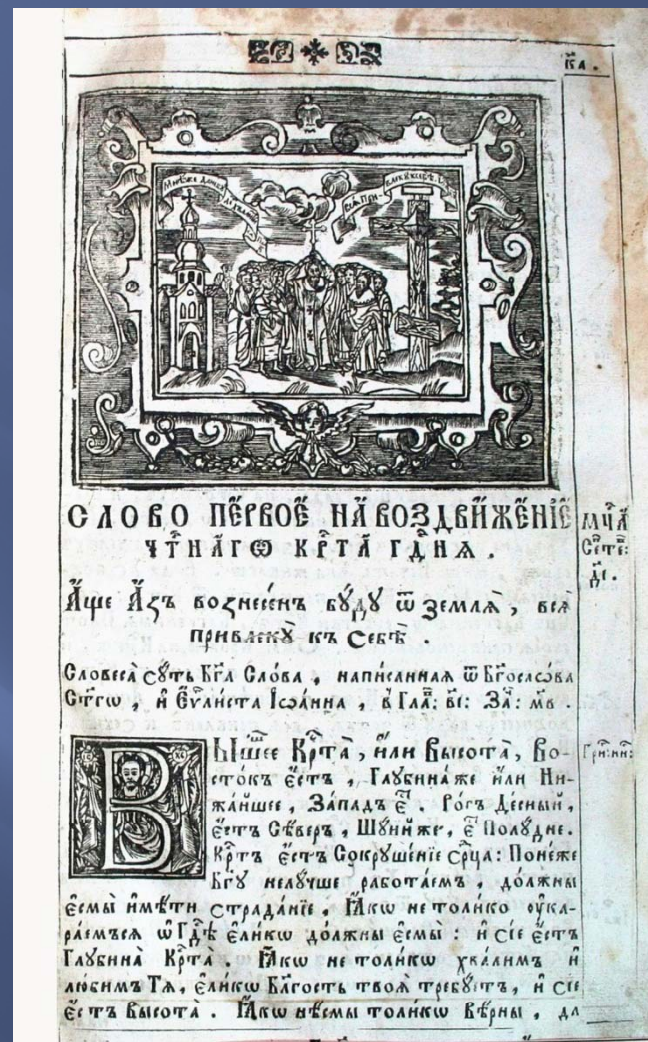 к҃а.
СЛОВО ПЕ́РВОЕ НА̀ ВОЗДВИ́ЖЕ́НІЕ
ЧТ҃НА́ГѠ КРТ҃А̀ ГДН҃Я
МЦ҃А
Сете:
д҃і.
А҆́ще А҆́зъ вознесе́нъ бꙋ́дꙋ ѿ Землѧ̀, всѧ̀
привлекꙋ̀ къ Себѣ̀.
Словеса̀ сꙋ́ть Бг҃а Сло́ва, напи́саннаѧ ѿ Бг҃осло́ва
Ст҃гѡ, и҆ Еѵ҃ли́ста Іѡа́нна, в̾ Гла: в҃і: За: м҃в.
Вы́шшее Крт҃а̀, и҆́ли Высота̀, Во-
сто́къ е҆́сть, Глꙋбина́же и҆лѝ Ни-
жа́йшее, За́падъ е҆́. Ро́гъ Десны́й,
е҆́сть Сѣ́веръ, Шꙋ́ййже, е҆́ Полꙋ́дне.
Крт҃ъ е҆́сть Сокрꙋше́ніе ср҃ца: Поне́же
Бг҃ꙋ нелꙋ́чше рабо́таемъ, до́лжны
е҆смы̀ и҆мѣ́ти Страда́ніе, Ꙗ҆́кѡ не то́лико оу҆кл-
рѧ́емъсѧ ѡ҆ Гд҃ѣ е҆ли́кѡ до́лжны е҆смы̀: и҆ сїѐ е҆́сть
Глꙋбина̀ Крт҃а̀. Ꙗ҆́кѡ не то́ликѡ хва́лимъ и҆
лю́бимъ Тѧ̀, е҆ли́кѡ Бл҃гость твоѧ̀ тре́бꙋетъ, и҆ сїѐ
е҆́сть Высота̀. Ꙗ҆́кѡ нѣ́смы то́ликѡ вѣ́рны, да